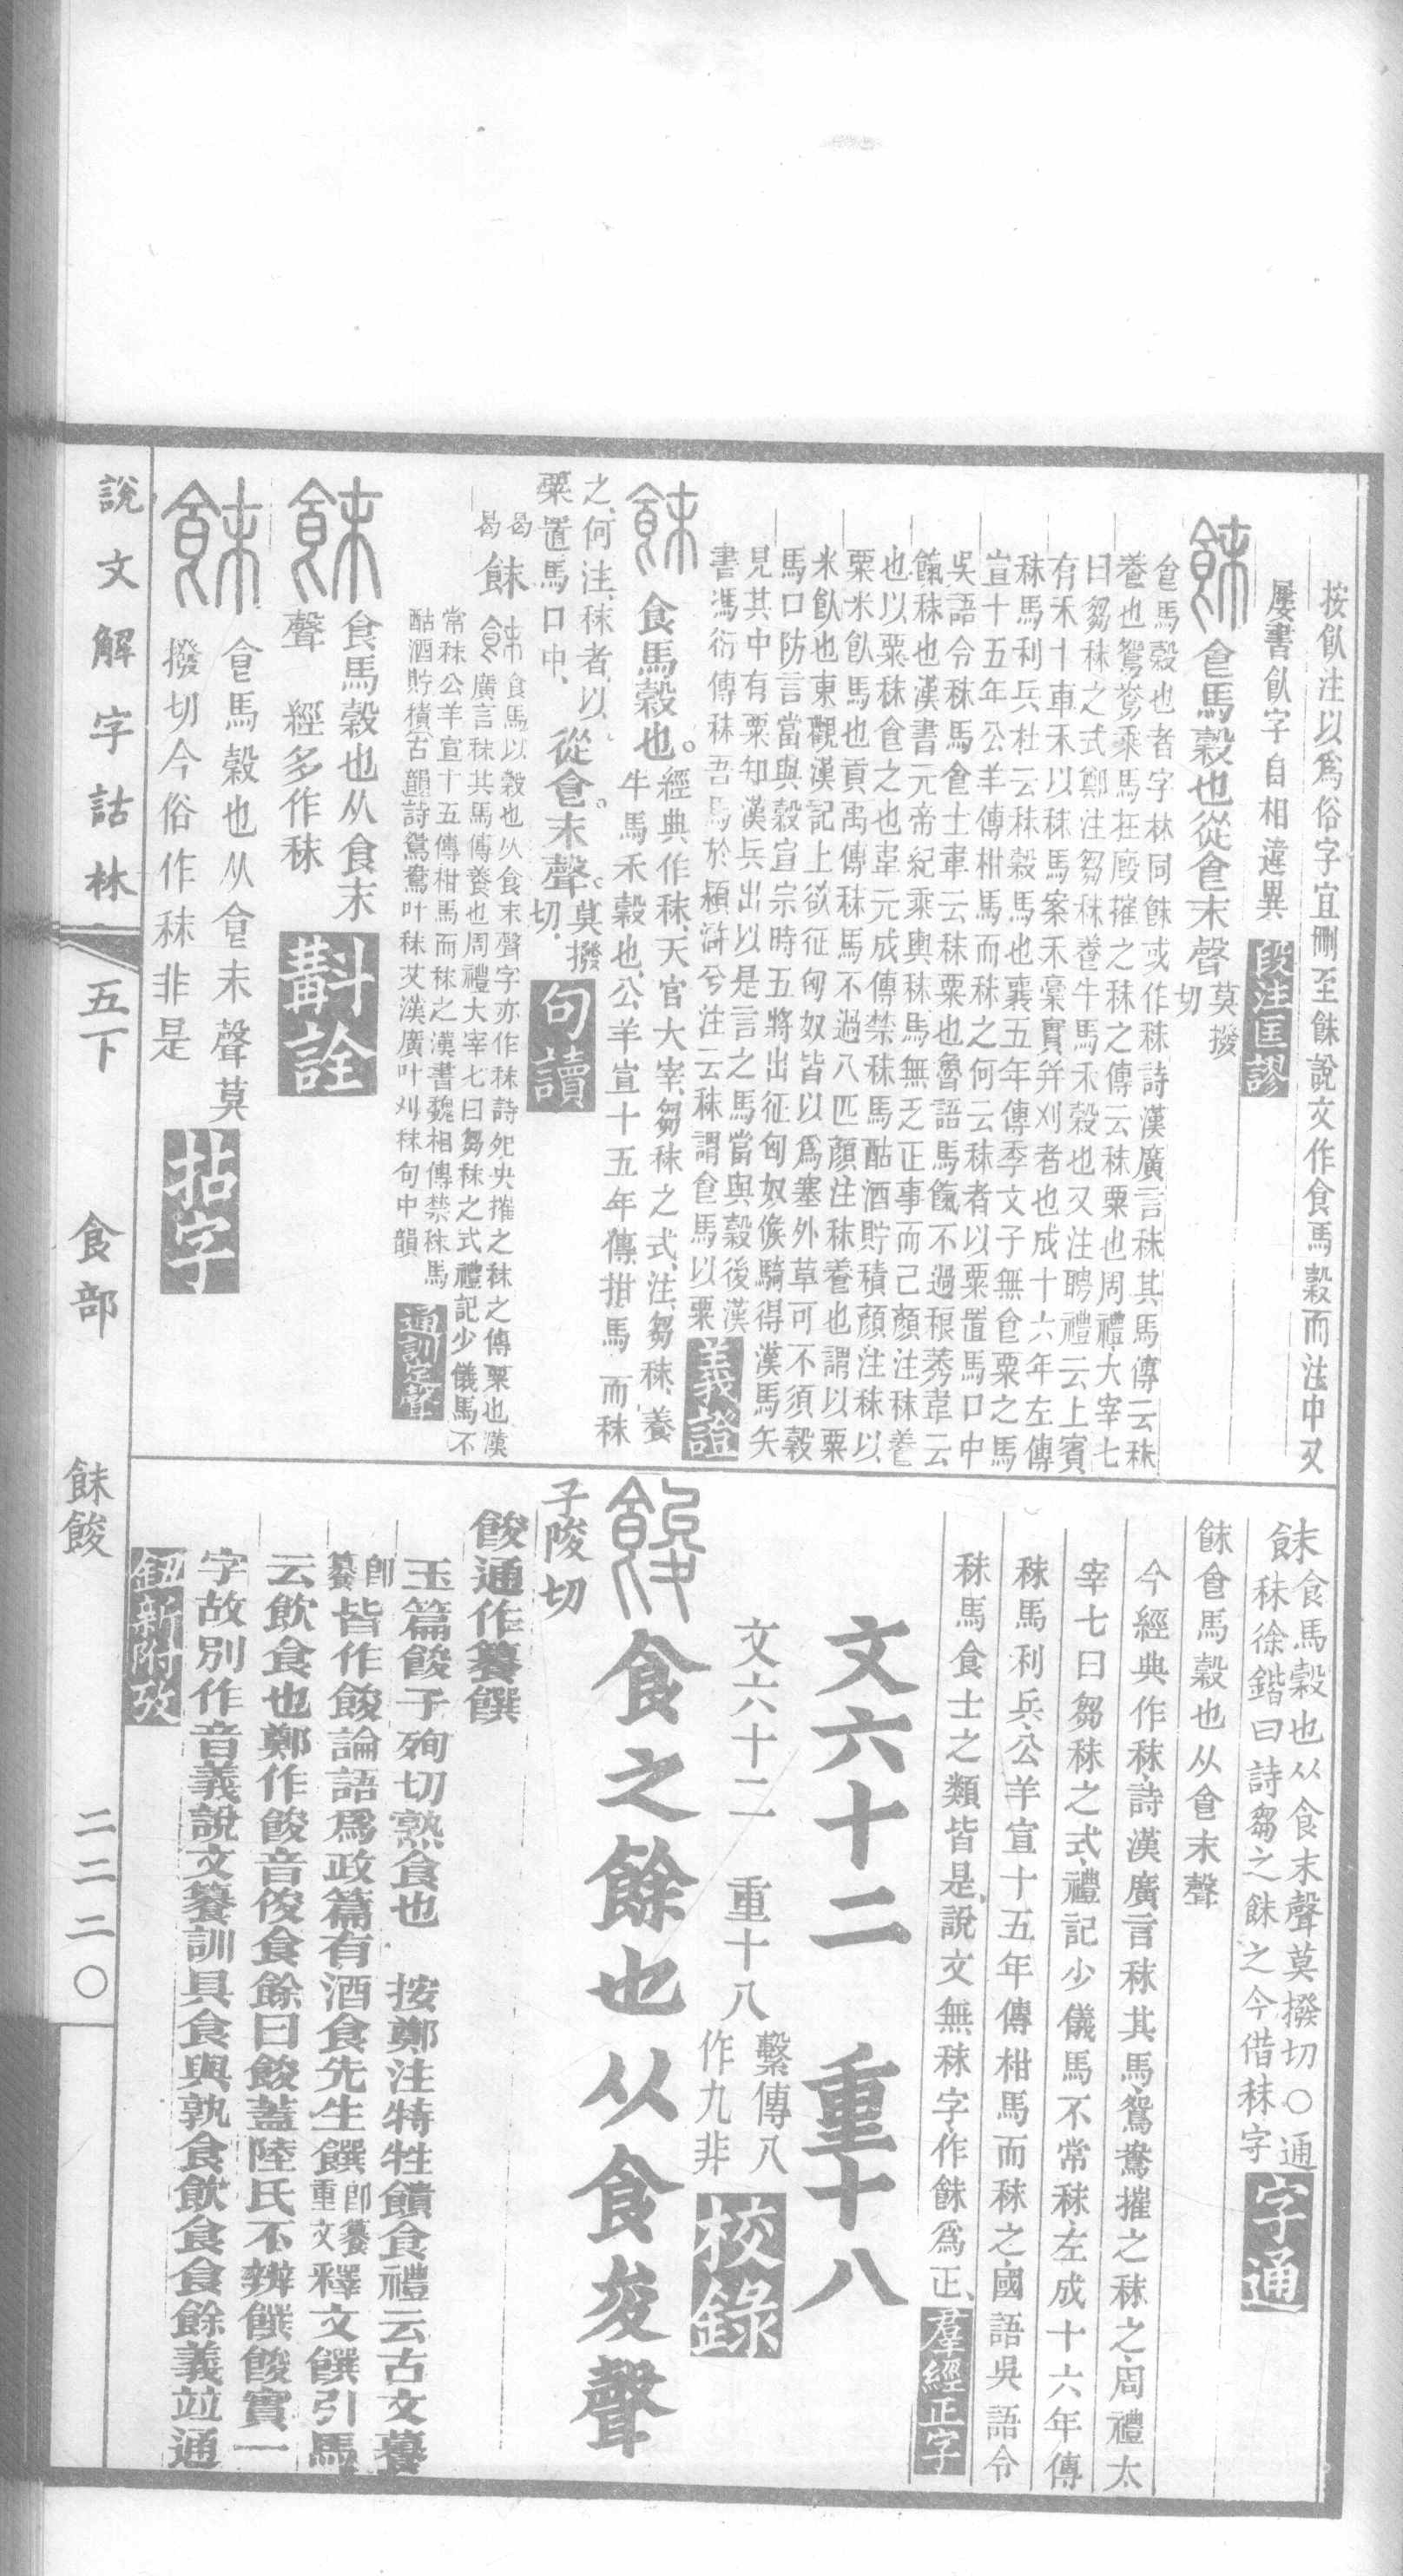 按飤注以爲俗字宜刪至餗說文作食馬穀而注中又
屢書飤字自相違異 段注匡謬
䬴 𩚁馬穀也從𩚁末聲 莫撥切
𩚁馬穀也者字林同䬴或作秣詩漢廣言秣其馬傳云秣
養也鴛鴦乘馬在廄摧之秣之傳云秣粟也周禮大宰七
曰芻秣之式鄭注芻秣養牛馬禾穀也又注聘禮云上賓
有禾十車禾以秣馬案禾稾實并刈者也成十六年左傳
秣馬利兵杜云秣穀馬也襄五年傳季文子無𩚁粟之馬
宣十五年公羊傳柑馬而秣之何云秣者以粟置馬口中
吳語令秣馬𩚁士韋云秣粟也魯語馬餼不過稂莠韋云
餼秣也漢書元帝紀乘輿秣馬無乏正事而已顏注秣養
也以粟秣𩚁之也韋元成傳禁秣馬酤酒貯積顏注秣以
粟米飤馬也貢禹傳秣馬不過八匹顏注秣養也謂以粟
米飤也東觀漢記上欲征匈奴皆以爲塞外草可不須穀
馬口防言當與穀宣宗時五將出征匈奴候騎得漢馬矢
見其中有粟知漢兵出以是言之馬當與穀後漢
書馮衍傳秣吾馬於潁滸兮注云秣謂𩚁馬以粟 義證
䬴 食馬穀也。經典作秣、天官大宰、芻秣之式、注、芻秣、養
牛馬禾穀也、公羊宣十五年傳拑馬而秣
之、何注、秣者、以
粟置馬口中、從𩚁。末聲。莫撥切、 句讀
曷曷 䬴 食馬以穀也从食末聲字亦作秣詩死央摧之秣之傳粟也漢
廣言秣其馬傳養也周禮大宰七曰芻秣之式禮記少儀馬不
常秣公羊宣十五傳柑馬而秣之漢書魏相傳禁秣馬
酤酒貯積〔古韻〕詩鴛鴦叶秣艾漢廣叶刈秣句中韻 通訓定聲
䬴 食馬穀也从食末
聲 經多作秣 斠詮
䬴 𩚁馬穀也从𩚁末聲莫
撥切今俗作秣非是 拈字
說文解字詁林 五下 食部 䬴餕 二二二〇
䬴食馬穀也从食末聲莫撥切〇通
秣徐鍇曰詩芻之䬴之今借秣字 字通
䬴𩚁馬穀也从𩚁末聲
今經典作秣、詩漢廣言秣其馬、鴛鴦摧之秣之、周禮太
宰七曰芻秣之式、禮記少儀馬不常秣、左成十六年傳
秣馬利兵、公羊宣十五年傳柑馬而秣之、國語吳語令
秣馬食士之類皆是、說文無秣字、作䬴爲正、 羣經正字
文六十二 重十八
文六十二 重十八 繫傳八作九非 校錄
餕 食之餘也从食夋聲
子陵切
餕通作籑饌
玉篇餕子殉切熟食也 按鄭注特牲饋食禮云古文䉵
卽籑皆作餕論語爲政篇有酒食先生饌卽籑重文釋文饌引馬
云飲食也鄭作餕音俊食餘曰餕蓋陸氏不辨饌餕實一
字故別作音義說文籑訓具食與孰食飲食食餘義竝通
鈕新附攷